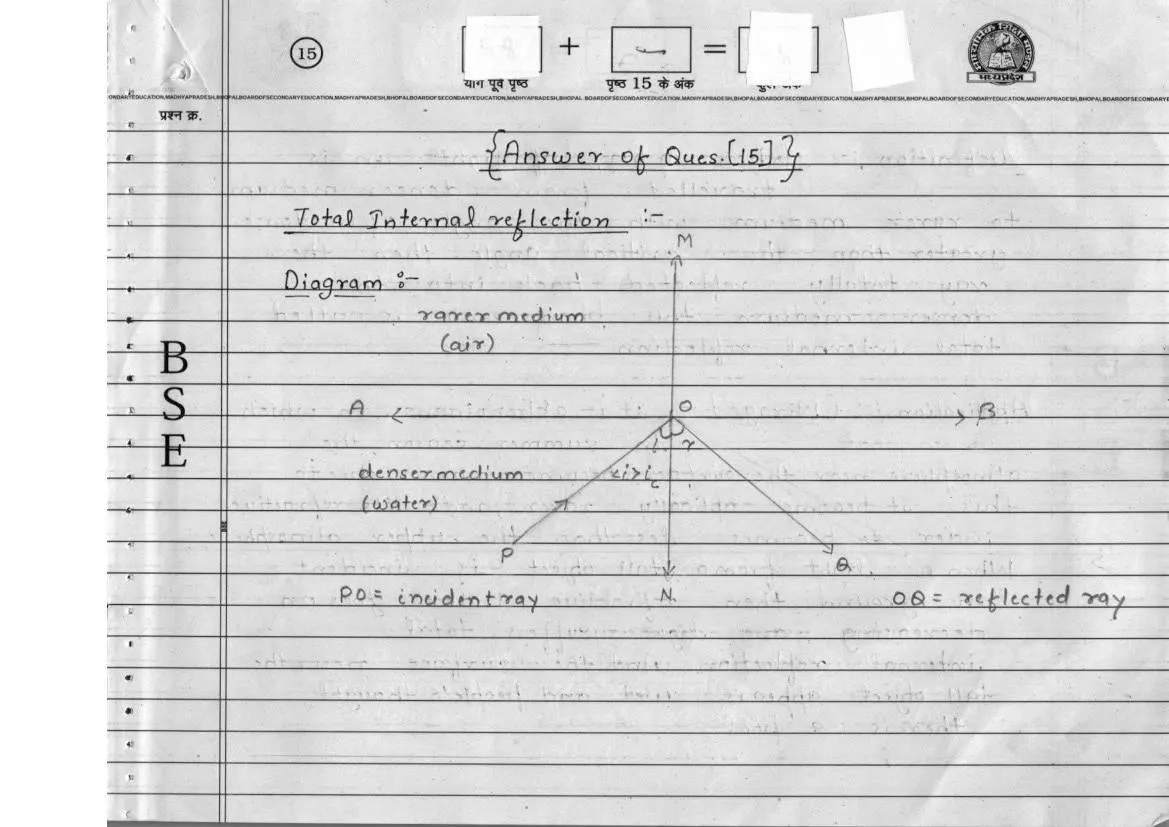 15
+ =
योग पूर्व पृष्ठ पृष्ठ 15 के अंक
मध्यप्रदेश
BOARDOFSECONDARYEDUCATION,MADHYAPRADESH,BHOPAL
प्रश्न क्र.
{Answer of Ques.[15]}
Total Internal reflection :-
M
Diagram :-
rarer medium
(air)
BSE
A O B
i r
denser medium <i>ic
(water)
P Q
N
PO = incident ray OQ = reflected ray